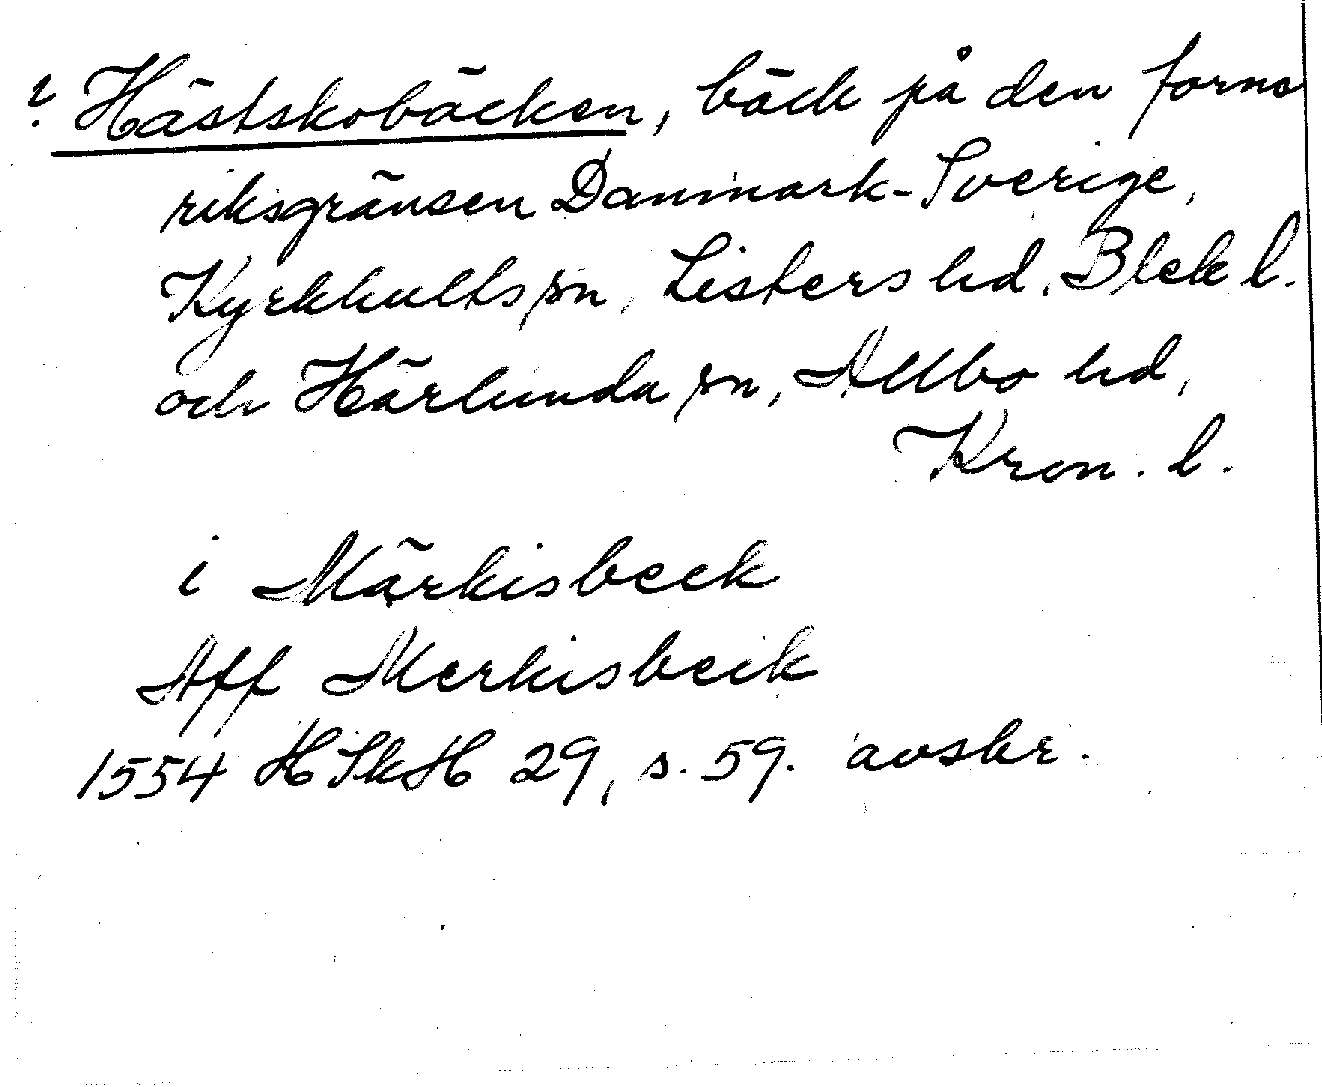 ? Hästskobäcken, bäck på den forna
riksgränsen Danmark-Sverige,
Kyrkhults sn, Listers hd, Blek l.
och Härlunda sn, Allbo hd,
Kron. l.
i Märkisbeck
Aff Merkisbeik
1554 HSkH 29, s. 59. avskr.